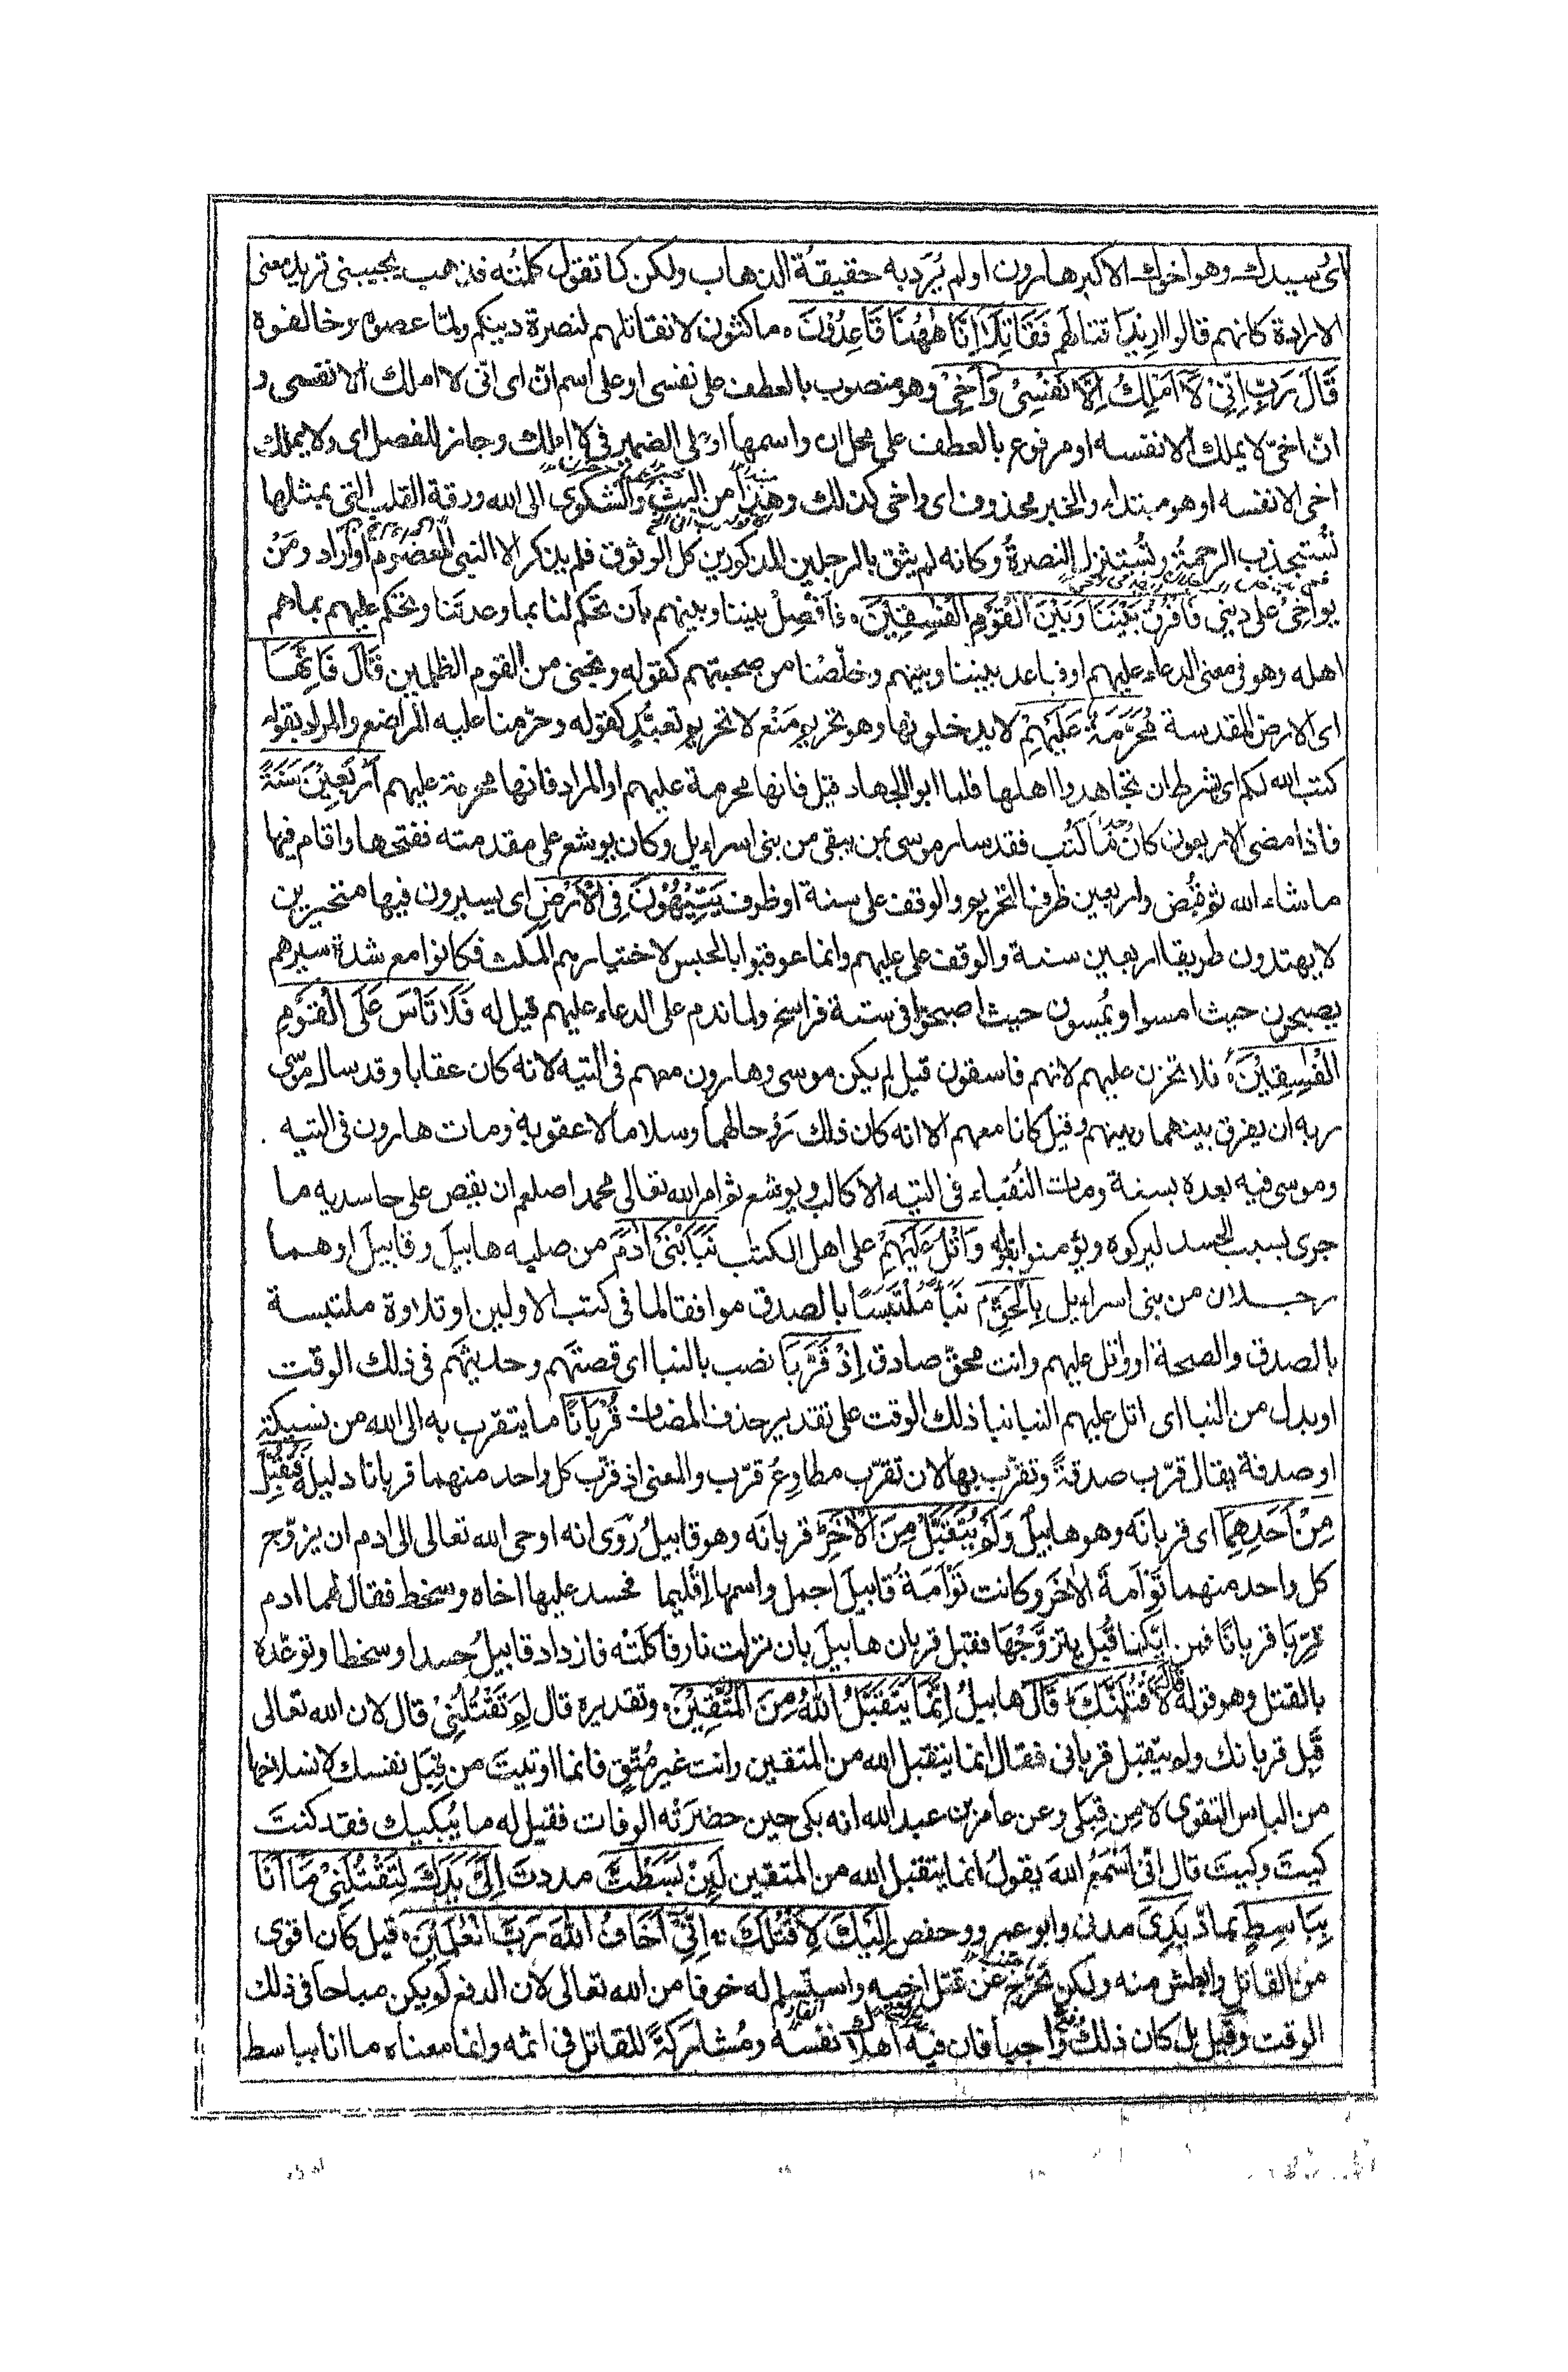 اى سيدك وهو اخوك الاكبر هارون او لم يُرَد به حقيقة الذهاب ولكن كما تقول كلمته فذهب يجيبنى تريد معنى
الارادة كانهم قالوا اريدا قتالهم فَقَاتِلَا اِنَّا هٰهُنَا قَاعِدُوْنَ ماكثون لا نقاتلهم لنصرة دينكم ولما عصوه وخالفوه
قَالَ رَبِّ اِنِّىْ لَا اَمْلِكُ اِلَّا نَفْسِىْ وَاَخِىْ وهو منصوب بالعطف على نفسى او على اسم انّ اى انى لا املك الا نفسى و
انّ اخى لا يملك الا نفسه او مرفوع بالعطف على محل ان واسمها او على الضمير فى لا املك وجاز للفصل اى ولا يملك
اخى الا نفسه او هو مبتداء والخبر محذوف اى واخى كذلك وهذا من البث والشكوى الى الله ورقة القلب التى بمثلها
تُستجذب الرحمةُ وتُستنزل النصرةُ وكانه لم يثق بالرجلين المذكورين كل الوثوق فلم يذكر الا النبى المعصوم او اراد ومَنْ
يواخى على دينى فَافْرُقْ بَيْنَنَا وَبَيْنَ الْقَوْمِ الْفٰسِقِيْنَ فَافْصِلْ بيننا وبينهم بان تحكم لنا بما وعدتنا وتحكم عليهم بما هم
اهله وهو فى معنى الدعاء عليهم او فباعد بيننا وبينهم وخلّصنا من صحبتهم كقوله ونجنى من القوم الظلمين قَالَ فَاِنَّهَا
اى الارض المقدسة مُحَرَّمَةٌ عَلَيْهِمْ لا يدخلونها وهو تحريم مَنْع لا تحريم تعبّد كقوله وحرّمنا عليه المراضع والمراد بقوله
كتب الله لكم اى بشرط ان تجاهدوا اهلها فلما ابوا الجهاد قيل فانها محرمة عليهم او المراد فانها محرمة عليهم اَرْبَعِيْنَ سَنَةً
فاذا مضى الاربعون كان مَا كُتِب فقد سار موسى بمن بقى من بنى اسراءيل وكان يوشع على مقدمته ففتحها واقام فيها
ما شاء الله ثم قُبض واربعين ظرف التحريم والوقف على سنة او ظرف يَتِيْهُوْنَ فِى الْاَرْضِ اى يسيرون فيها متحيرين
لا يهتدون طريقا اربعين سنة والوقف على عليهم وانما عوقبوا بالحبس لاختيارهم المكث فكانوا مع شدة سيرهم
يصبحون حيث امسوا ويُمسون حيث اصبحوا فى ستة فراسخ ولما ندم على الدعاء عليهم قيل له فَلَا تَاْسَ عَلَى الْقَوْمِ
الْفٰسِقِيْنَ فلا تحزن عليهم لانهم فاسقون قيل لم يكن موسى وهارون معهم فى التيه لانه كان عقابا وقد سال موسى
ربه ان يفرق بينهما وبينهم وقيل كانا معهم الا انه كان ذلك رَوحا لهما وسلاما لا عقوبة ومات هارون فى التيه
وموسى فيه بعده بسنة ومات النُقباء فى التيه الا كالب ويوشع ثم امر الله تعالى محمدا صلعم ان يقص على حاسديه ما
جرى بسبب الحسد ليتركوه ويؤمنوا بقوله وَاتْلُ عَلَيْهِمْ على اهل الكتٰب نَبَاَ ابْنَىْ اٰدَمَ من صلبه هابيلَ وقابيلَ او هما
رجلان من بنى اسراءيل بِالْحَقِّ نبأً مُلْتَبِسًا بالصدق موافقا لما فى كتب الاولين او تلاوة ملتبسة
بالصدق والصحة او واتل عليهم وانت محقّ صادق اِذْ قَرَّبَا نصب بالنبا اى قصتهم وحديثهم فى ذلك الوقت
او بدل من النبا اى اتل عليهم النبا نبا ذلك الوقت على تقدير حذف المضاف قُرْبَانًا ما يتقرب به الى الله من نسيكة
او صدقة يقال قرّب صدقةً وتقرّب بها لان تقرّب مطاوِعُ قرّب والمعنى اذ قرّب كل واحد منهما قربانا دليله فَتُقُبِّلَ
مِنْ اَحَدِهِمَا اى قربانَه وهو هابيلُ وَلَمْ يُتَقَبَّلْ مِنَ الْاٰخَرِ قربانَه وهو قابيلُ رُوى انه اوحى الله تعالى الى ادم ان يزوّج
كل واحد منهما تَوْاَمةَ الاٰخَر وكانت تَوْاَمَةُ قابيلَ اجمل واسمها اِقْليما فحسد عليها اخاه وسخط فقال لهما ادم
قرّبا قربانا فمن ايّكما قُبِل يتزوّجُها فقبل قربان هابيلَ بان نزلت نار فاكلته فازداد قابيلُ حسدا وسخطا وتوعّده
بالقتل وهو قوله قَالَ لَاَقْتُلَنَّكَ قَالَ هابيلُ اِنَّمَا يَتَقَبَّلُ اللهُ مِنَ الْمُتَّقِيْنَ وتقديره قال لِمَ تَقْتُلُنِىْ قال لان الله تعالى
قَبِل قربانك ولم يتقبل قربانى فقال انما يتقبل الله من المتقين وانت غير مُتّقٍ فانما اوتيتَ من قِبَل نفسك لانسلاخها
من لباس التقوى لا مِن قِبَلى وعن عامر بن عبد الله انه بكى حين حضرَتْه الوفات فقيل له ما يُبكيك فقد كنتَ
كيتَ وكيتَ قال انّى اسْمَعُ اللهَ يقولُ انما يتقبل الله من المتقين لَئِنْ بَسَطْتَّ مددتَ اِلَىَّ يَدَكَ لِتَقْتُلَنِىْ مَا اَنَا
بِبَاسِطٍ بمادّ يَدِىَ مدنى وابو عمرو وحفص اِلَيْكَ لِاَقْتُلَكَ اِنِّىْ اَخَافُ اللهَ رَبَّ الْعٰلَمِيْنَ قيل كان اقوى
من القاتل وابطش منه ولكن تحرّج عن قتل اخيه واستسلم له خوفا من الله تعالى لان الدفع لم يكن مباحا فى ذلك
الوقت وقيل بل كان ذلك واجبا فان فيه اهلاك نفسه ومُشارَكةً للقاتل فى اثمه وانما معناه ما انا بباسط